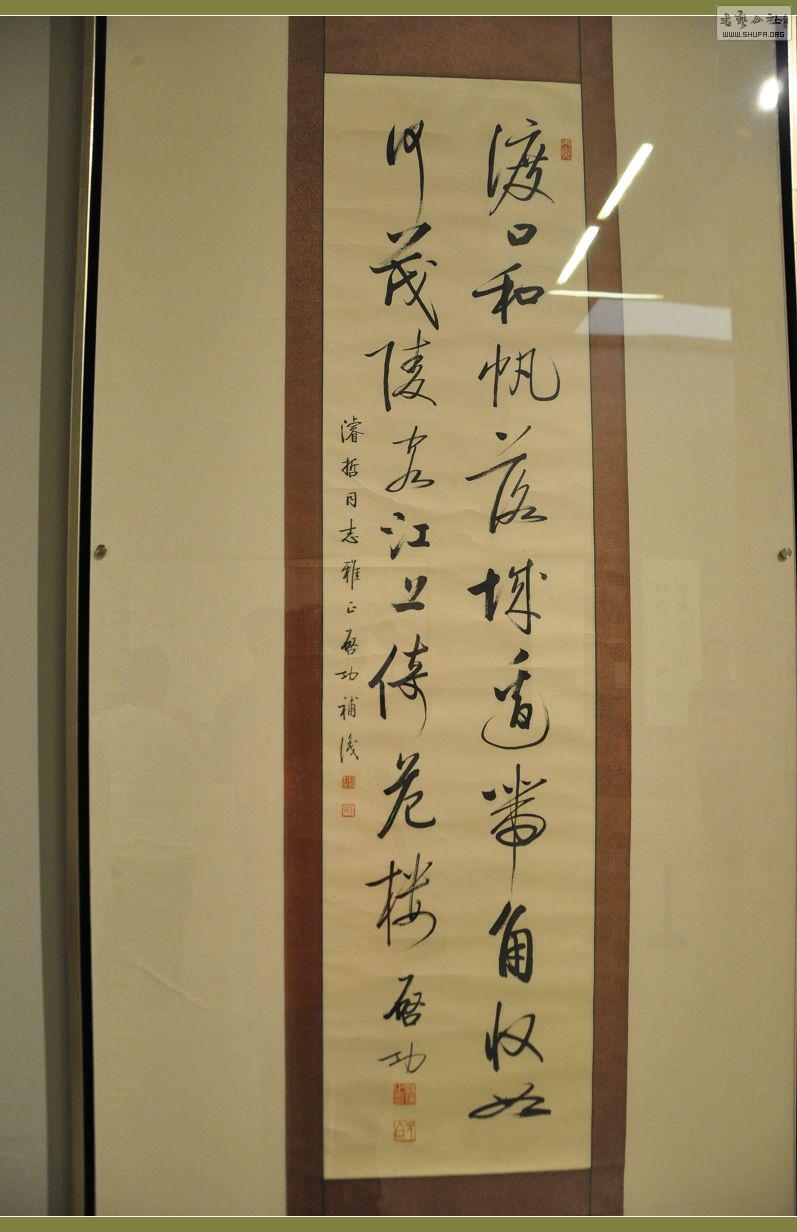 渡口和帆落城邊帶角收如
何茂陵客江上倚危楼啓功
濬哲同志雅正啓功補識
WWW.SHUFA.ORG